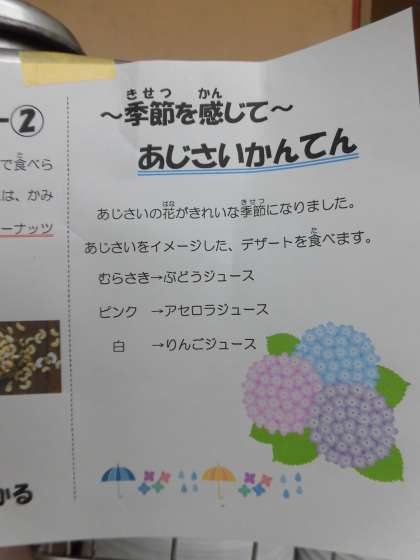 ー②
で食べら
は、かみ
ーナッツ
かる
きせつ かん
～季節を感じて～
あじさいかんてん
はな きせつ
あじさいの花がきれいな季節になりました。
た
あじさいをイメージした、デザートを食べます。
むらさき→ぶどうジュース
ピンク →アセロラジュース
白 →りんごジュース